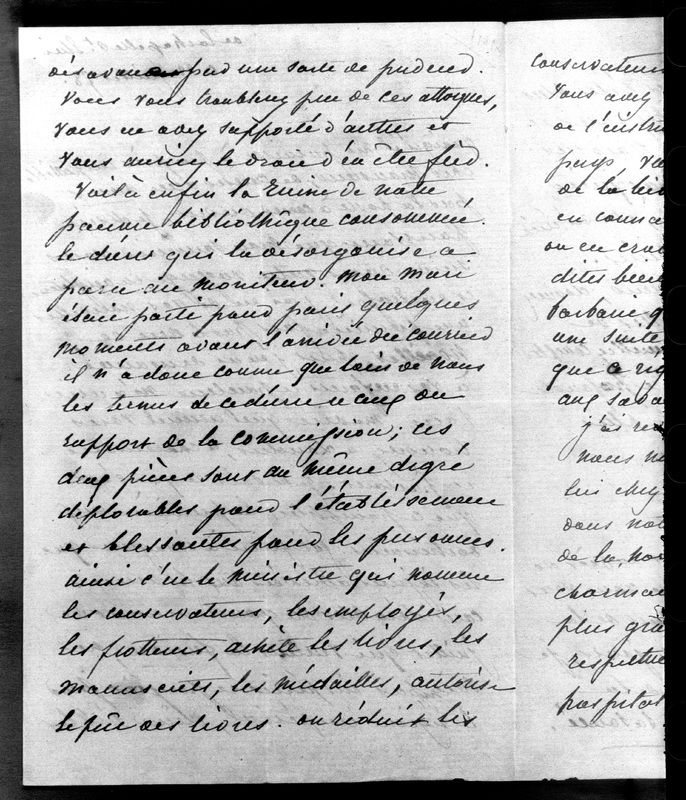 désavoue par une sorte de pudeur.
Vous vous troublez peu de ces attaques,
vous en avez supporté d'autres et
vous auriez le droit d'en être fier.
Voilà enfin la ruine de notre
pauvre bibliothèque consommée.
le décret qui la désorganise a
paru au moniteur. Mon mari
était parti pour paris quelques
moments avant l'arrivée du courrier
il n'a donc connu que loin de nous
les termes de ce décret et ceux du
rapport de la commission; ces
deux pièces sont au même dégré
déplorables pour l'établissement
et blessantes pour les personnes.
ainsi c'est le ministre qui nomme
les conservateurs, les employés,
les frotteurs, achète les livres, les
manuscrits, les médailles, autorise
le prêt des livres. on réduit les
conservateurs
Vous avez
de l'instru
pays
de la bi
en conna
ou en croi
dites bien
barbarie q
une suite
que
aux sava
j'ai re
nous
dans not
de la
charma
plus gra
respectue